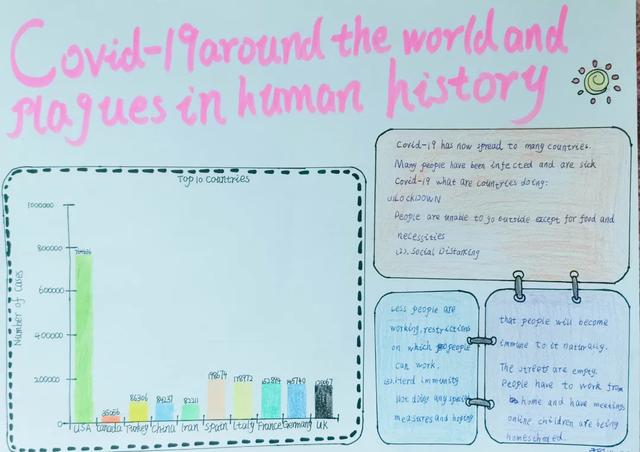 Covid-19 around the world and
plagues in human history
Top 10 countries
Number of Cases
1000000
800000
600000
400000
200000
0
35056
86306
84237
82211
198674
178972
152894
145740
USA Canada Turkey China Iran Spain Italy France Germany UK
Covid-19 has now spread to many countries.
Many people have been infected and are sick
Covid-19 what are countries doing:
LOCKDOWN
People are unable to go outside except for food and
necessities
(2). Social Distancing
Less people are
working, restrictions
on which people
can work.
Herd immunity
Not doing any special
measures and hoping
that people will become
immune to it naturally.
The streets are empty.
People have to work from
home and have meetings
online, children are being
homeschooled.